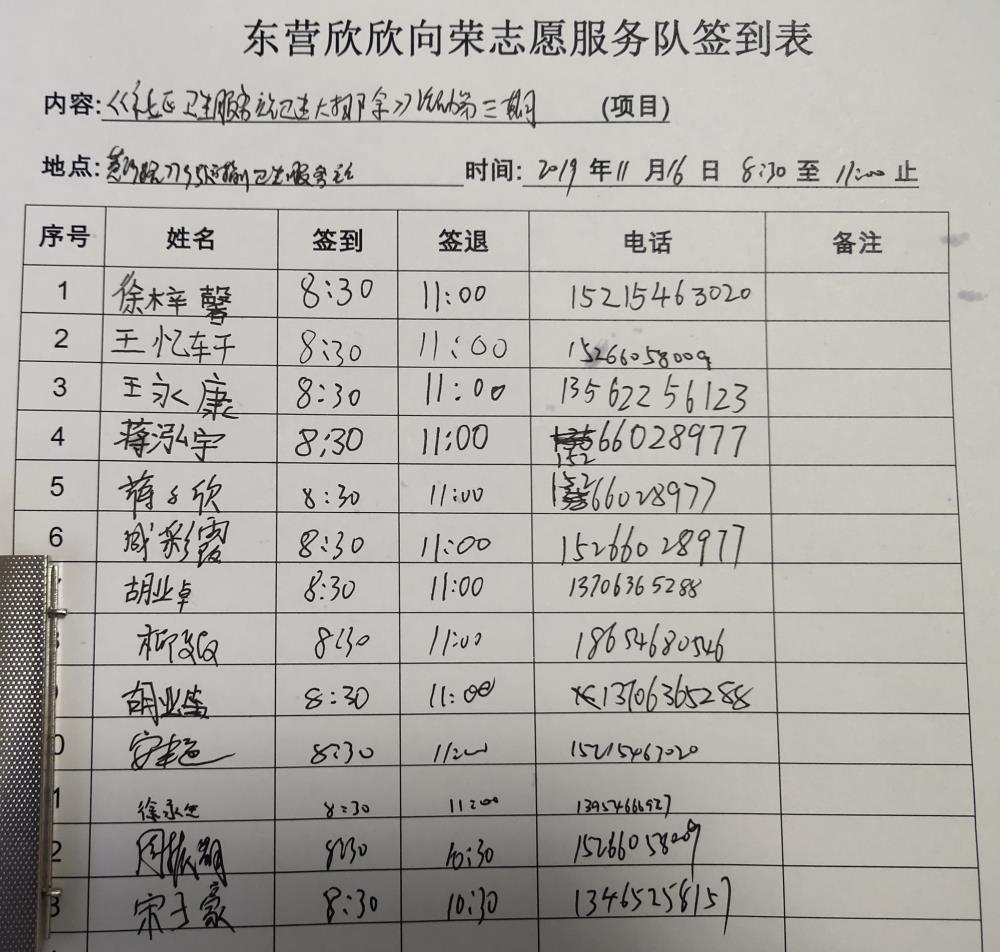 东营欣欣向荣志愿服务队签到表
内容:《社区卫生服务站卫生大扫除》活动第三期 (项目)
地点: 卫生服务站 时间: 2019 年 11 月 16 日 8:30 至 11:00 止
序号 姓名 签到 签退 电话 备注
1 徐梓馨 8:30 11:00 15215463020
2 王忆车干 8:30 11:00 15266058009
3 王永康 8:30 11:00 13562256123
4 蒋泓宇 8:30 11:00 15266028997
5 蒋子欣 8:30 11:00 15266028977
6 臧彩霞 8:30 11:00 15266028977
胡业卓 8:30 11:00 13706365288
柳 8:30 11:00 18654680546
9 胡业 8:30 11:00 13706365288
0 安 8:30 11:00 15215463020
1 徐永 8:30 11:00 13954666927
2 周振 8:30 10:30 15266058009
3 宋子豪 8:30 10:30 13465258157